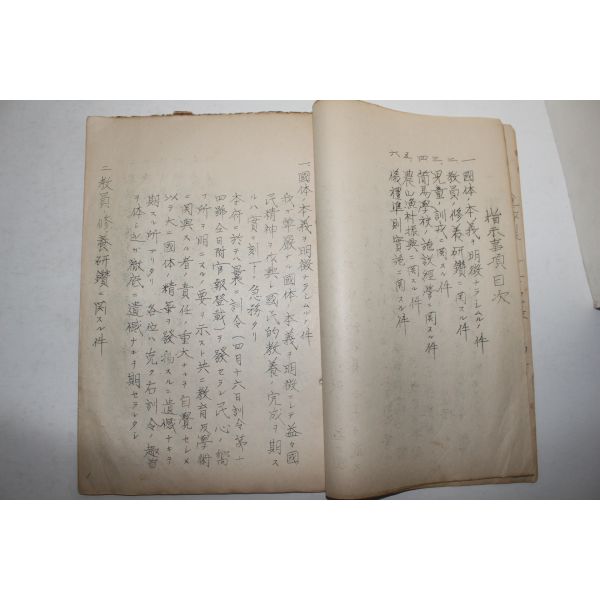 指示事項目次
一、國体ノ本義ヲ明徴ナラシムルノ件
二、教員ノ修養研鑽ニ関スル件
三、児童ノ訓戒ニ関スル件
四、簡易學校ノ施設経營ニ関スル件
五、農山漁村振興ニ関スル件
六、儀禮準則實施ニ関スル件
一、國体ノ本義ヲ明徴ナラシムルノ件
我ガ尊厳ナル國体ノ本義ヲ明徴ニシテ益々國
民精神ヲ作興シ國民的教養ノ完成ヲ期ス
ルハ實ニ刻下ノ急務タリ
本府ニ於テハ曩ニ訓令(四月十六日訓令第十
四號仝日附官報登載)ヲ發セラレ民心ノ嚮
フ所ヲ明ニスルノ要ヲ示スト共ニ教育及學術
ニ関與スル者ノ責任ノ重大ナルヲ自覺セシメ
以テ大ニ國体ノ精華ヲ發揚スルニ遺憾ナキヲ
期スル所アリタリ各位ハ克ク右訓令ノ趣旨
ヲ体シ之ガ徹底ニ遺憾ナキヲ期セラレタシ
二、教員ノ修養研鑽ニ関スル件